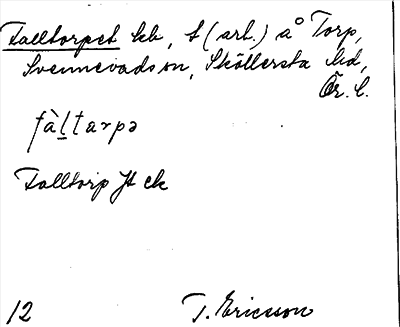 Falltorpet lkb, t (arb.) å Torp,
Svennevads sn, Sköllersta hd,
Ör. l.
fàltarpə
Falltorp Jt ek
12 T. Ericsson